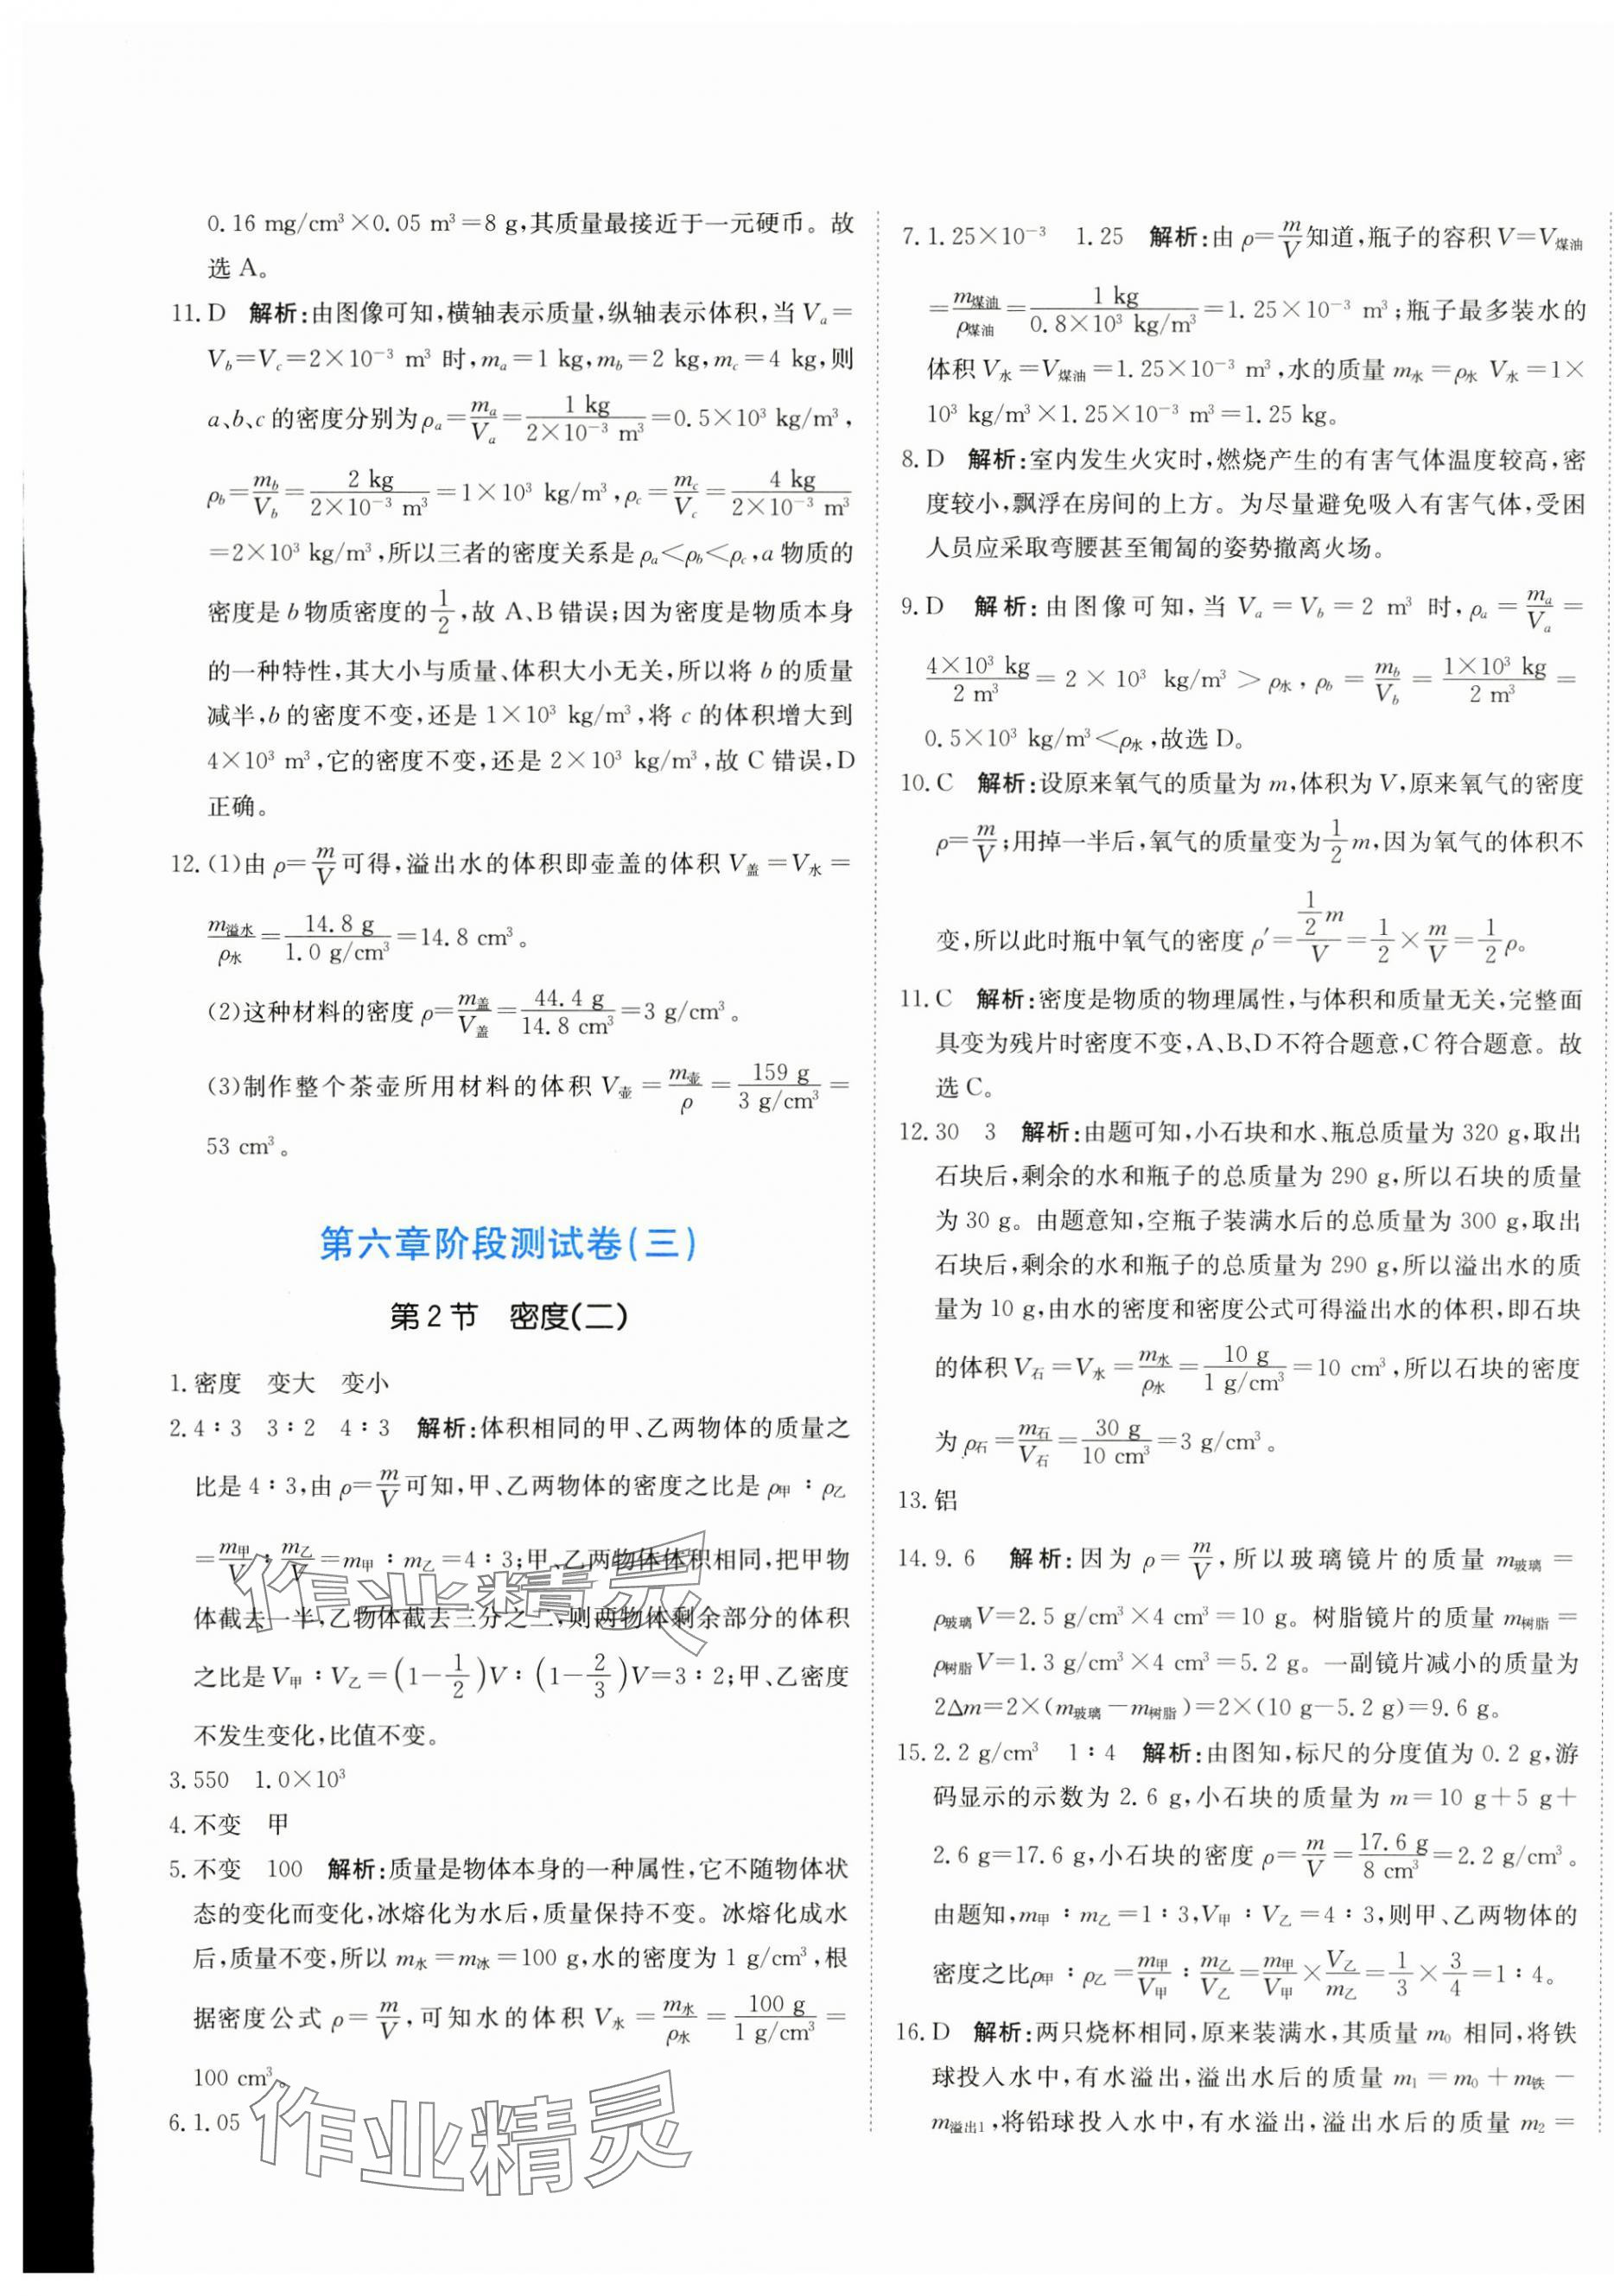 0.16 mg/cm³×0.05 m³=8 g,其质量最接近于一元硬币。故
选 A。
11. D 解析:由图像可知,横轴表示质量,纵轴表示体积,当 Vₐ=
V_b=V_c=2×10⁻³ m³ 时,mₐ=1 kg,m_b=2 kg,m_c=4 kg,则
a、b、c 的密度分别为 ρₐ=mₐ/Vₐ=1 kg/(2×10⁻³ m³)=0.5×10³ kg/m³,
ρ_b=m_b/V_b=2 kg/(2×10⁻³ m³)=1×10³ kg/m³,ρ_c=m_c/V_c=4 kg/(2×10⁻³ m³)
=2×10³ kg/m³,所以三者的密度关系是 ρₐ<ρ_b<ρ_c,a 物质的
密度是 b 物质密度的1/2,故 A、B 错误;因为密度是物质本身
的一种特性,其大小与质量、体积大小无关,所以将 b 的质量
减半,b 的密度不变,还是 1×10³ kg/m³,将 c 的体积增大到
4×10³ m³,它的密度不变,还是 2×10³ kg/m³,故 C 错误,D
正确。
12. (1)由 ρ=m/V可得,溢出水的体积即壶盖的体积 V盖=V水=
m溢水/ρ水=14.8 g/(1.0 g/cm³)=14.8 cm³。
(2)这种材料的密度 ρ=m盖/V盖=44.4 g/14.8 cm³=3 g/cm³。
(3)制作整个茶壶所用材料的体积 V壶=m壶/ρ=159 g/(3 g/cm³)=
53 cm³。
第六章阶段测试卷(三)
第2节 密度(二)
1. 密度 变大 变小
2. 4∶3 3∶2 4∶3 解析:体积相同的甲、乙两物体的质量之
比是 4∶3,由 ρ=m/V可知,甲、乙两物体的密度之比是 ρ甲∶ρ乙
=m甲/V∶m乙/V=m甲∶m乙=4∶3;甲、乙两物体体积相同,把甲物
体截去一半,乙物体截去三分之二,则两物体剩余部分的体积
之比是 V甲∶V乙=(1-1/2)V∶(1-2/3)V=3∶2;甲、乙密度
不发生变化,比值不变。
3. 550 1.0×10³
4. 不变 甲
5. 不变 100 解析:质量是物体本身的一种属性,它不随物体状
态的变化而变化,冰熔化为水后,质量保持不变。冰熔化成水
后,质量不变,所以 m水=m冰=100 g,水的密度为 1 g/cm³,根
据密度公式 ρ=m/V,可知水的体积 V水=m水/ρ水=100 g/(1 g/cm³)=
100 cm³。
6. 1.05
7. 1.25×10⁻³ 1.25 解析:由 ρ=m/V知道,瓶子的容积 V=V煤油
=m煤油/ρ煤油=1 kg/(0.8×10³ kg/m³)=1.25×10⁻³ m³;瓶子最多装水的
体积 V水=V煤油=1.25×10⁻³ m³,水的质量 m水=ρ水 V水=1×
10³ kg/m³×1.25×10⁻³ m³=1.25 kg。
8. D 解析:室内发生火灾时,燃烧产生的有害气体温度较高,密
度较小,飘浮在房间的上方。为尽量避免吸入有害气体,受困
人员应采取弯腰甚至匍匐的姿势撤离火场。
9. D 解析:由图像可知,当 Vₐ=V_b=2 m³ 时,ρₐ=mₐ/Vₐ=
4×10³ kg/2 m³=2×10³ kg/m³>ρ水,ρ_b=m_b/V_b=1×10³ kg/2 m³=
0.5×10³ kg/m³<ρ水,故选 D。
10. C 解析:设原来氧气的质量为 m,体积为 V,原来氧气的密度
ρ=m/V;用掉一半后,氧气的质量变为1/2m,因为氧气的体积不
变,所以此时瓶中氧气的密度 ρ′=(1/2m)/V=1/2×m/V=1/2ρ。
11. C 解析:密度是物质的物理属性,与体积和质量无关,完整面
具变为残片时密度不变,A、B、D 不符合题意,C 符合题意。故
选 C。
12. 30 3 解析:由题可知,小石块和水、瓶总质量为 320 g,取出
石块后,剩余的水和瓶子的总质量为 290 g,所以石块的质量
为 30 g。由题意知,空瓶子装满水后的总质量为 300 g,取出
石块后,剩余的水和瓶子的总质量为 290 g,所以溢出水的质
量为 10 g,由水的密度和密度公式可得溢出水的体积,即石块
的体积 V石=V水=m水/ρ水=10 g/(1 g/cm³)=10 cm³,所以石块的密度
为 ρ石=m石/V石=30 g/10 cm³=3 g/cm³。
13. 铝
14. 9.6 解析:因为 ρ=m/V,所以玻璃镜片的质量 m玻璃=
ρ玻璃V=2.5 g/cm³×4 cm³=10 g。树脂镜片的质量 m树脂=
ρ树脂V=1.3 g/cm³×4 cm³=5.2 g。一副镜片减小的质量为
2Δm=2×(m玻璃-m树脂)=2×(10 g-5.2 g)=9.6 g。
15. 2.2 g/cm³ 1∶4 解析:由图知,标尺的分度值为 0.2 g,游
码显示的示数为 2.6 g,小石块的质量为 m=10 g+5 g+
2.6 g=17.6 g,小石块的密度 ρ=m/V=17.6 g/8 cm³=2.2 g/cm³。
由题知,m甲∶m乙=1∶3,V甲∶V乙=4∶3,则甲、乙两物体的
密度之比ρ甲∶ρ乙=m甲/V甲∶m乙/V乙=m甲/V甲×V乙/m乙=1/3×3/4=1∶4。
16. D 解析:两只烧杯相同,原来装满水,其质量 m₀ 相同,将铁
球投入水中,有水溢出,溢出水后的质量 m₁=m₀+m铁-
m溢出1,将铅球投入水中,有水溢出,溢出水后的质量 m₂=
作业精灵
作业精灵